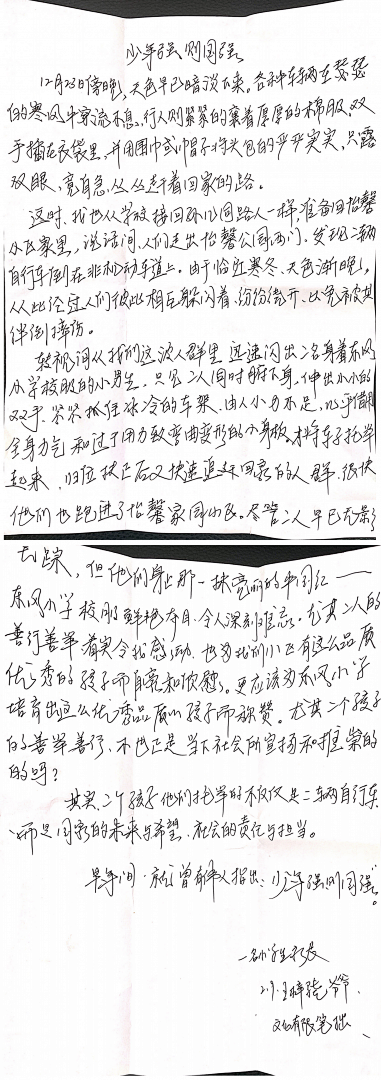 少年强则国强
12月23日傍晚,天色早已暗淡下来。各种车辆在瑟瑟
的寒风中穿流不息,行人则紧紧的裹着厚厚的棉服,双
手插在衣袋里,并用围巾或帽子将头包的严严实实,只露
双眼,急匆匆赶着回家的路。
这时,我也从学校接回孙儿同路人一样,准备回怡馨
小区家里,说话间,人们走出怡馨公园西门,发现二辆
自行车倒在非机动车道上。由于临近寒冬、天色渐晚,
从此经过人们彼此相互躲闪着、纷纷绕开、以免被其
绊倒摔伤。
转视间从我们这波人群里迅速闪出二名身着东风
小学校服的小男生,只见二人同时俯下身,伸出小小的
双手,紧紧抓住冰冷的车架,由人小力不足,几乎借用
全身力气和过于用力致弯曲变形的小身板,才将车子托举
起来,归位扶正后又快速追赶回家的人群,很快
他们也跑进了怡馨家园小区。尽管二人早已无影
无踪,但他们身上那一抹亮丽的中国红——
东风小学校服鲜艳夺目、令人深刻难忘。尤其二人的
善行善举着实令我感动,也为我们小区有这么品质
优秀的孩子而自豪和欣慰。更应该为东风小学
培育出这么优秀品质的孩子而称赞。尤其二个孩子
的善举善行、不也正是当下社会所宣扬和推崇的
的吗?
其实二个孩子他们托举的不仅仅是二辆自行车
、而是国家的未来与希望、社会的责任与担当。
早年间,就曾有伟人指出:少年强则国强。
一名小学生家长
2.9.王梓骁爷爷
文化有限笔拙